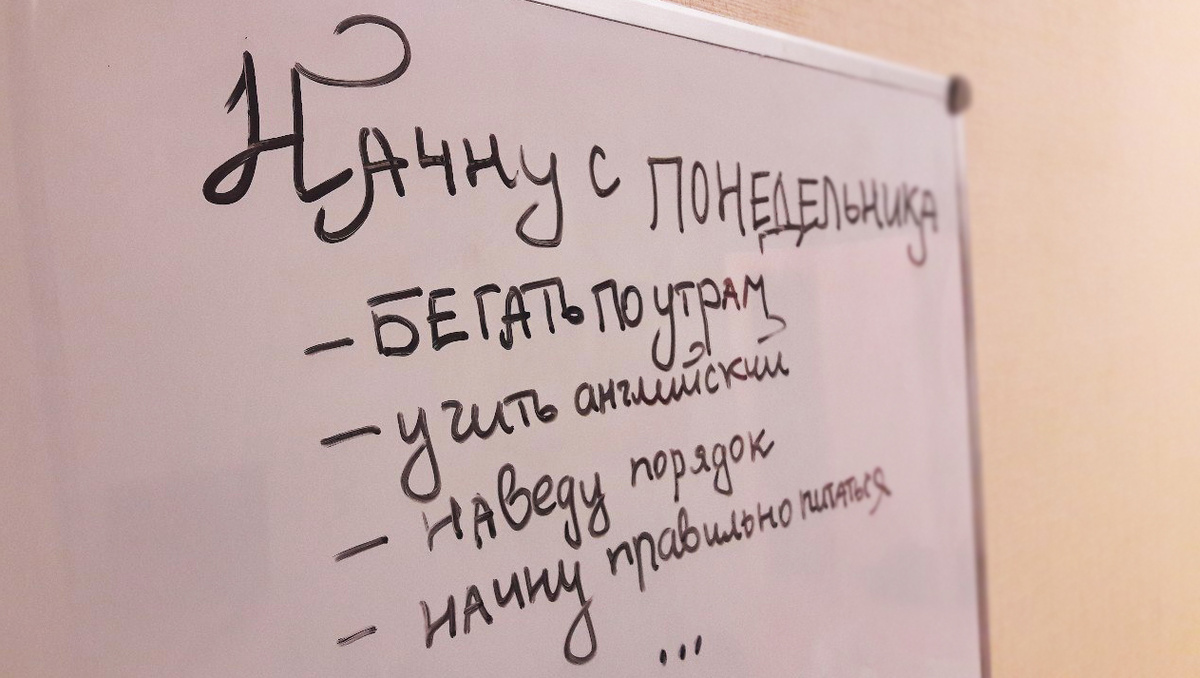 Начну с понедельника
- БЕГАТЬ ПО УТРАМ
- учить английский
- наведу порядок
- начну правильно питаться
...